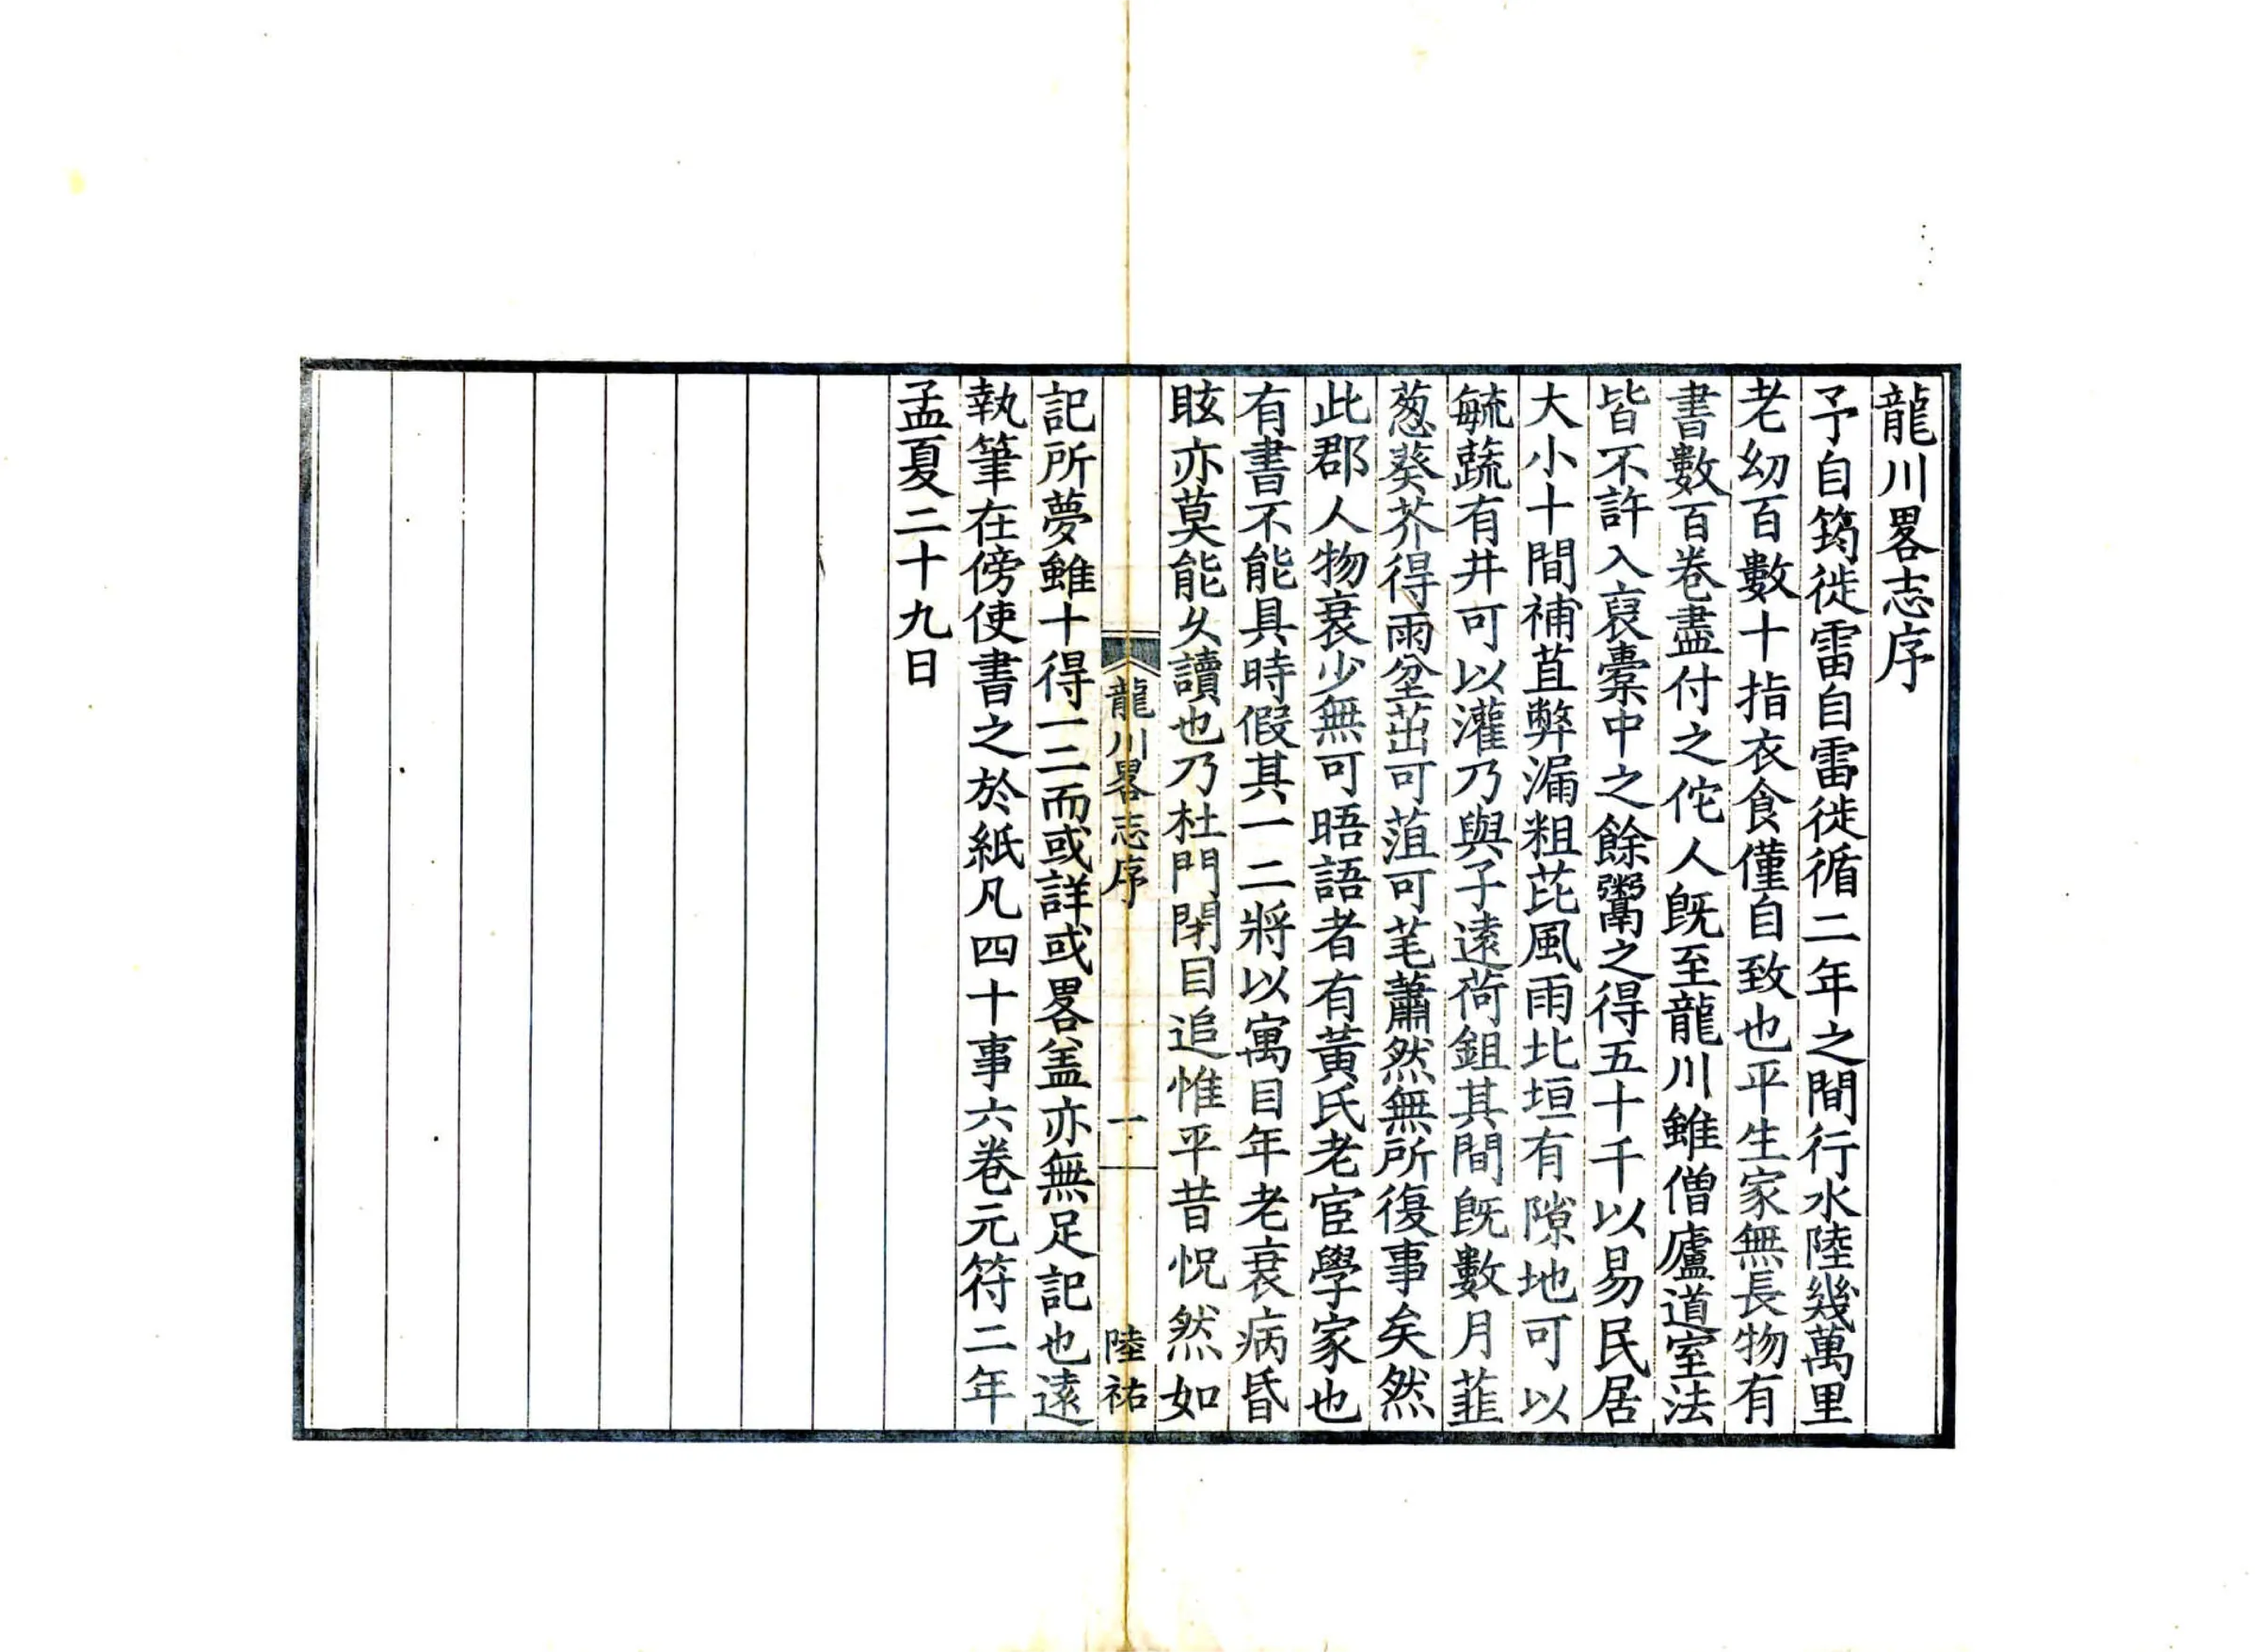 龍川畧志序
予自筠徙雷自雷徙循二年之間行水陸幾萬里
老幼百數十指衣食僅自致也平生家無長物有
書數百卷盡付之佗人旣至龍川雖僧廬道室法
皆不許入裒橐中之餘鬻之得五十千以易民居
大小十間補苴弊漏粗芘風雨北垣有隙地可以
毓蔬有井可以灌乃與子遠荷鉏其間旣數月韭
葱葵芥得雨坌茁可葅可芼蕭然無所復事矣然
此郡人物衰少無可晤語者有黃氏老宦學家也
有書不能具時假其一二將以寓目年老衰病昏
眩亦莫能久讀也乃杜門閉目追惟平昔怳然如
龍川畧志序 一 陸祐
記所夢雖十得一二而或詳或畧盖亦無足記也遠
執筆在傍使書之於紙凡四十事六卷元符二年
孟夏二十九日